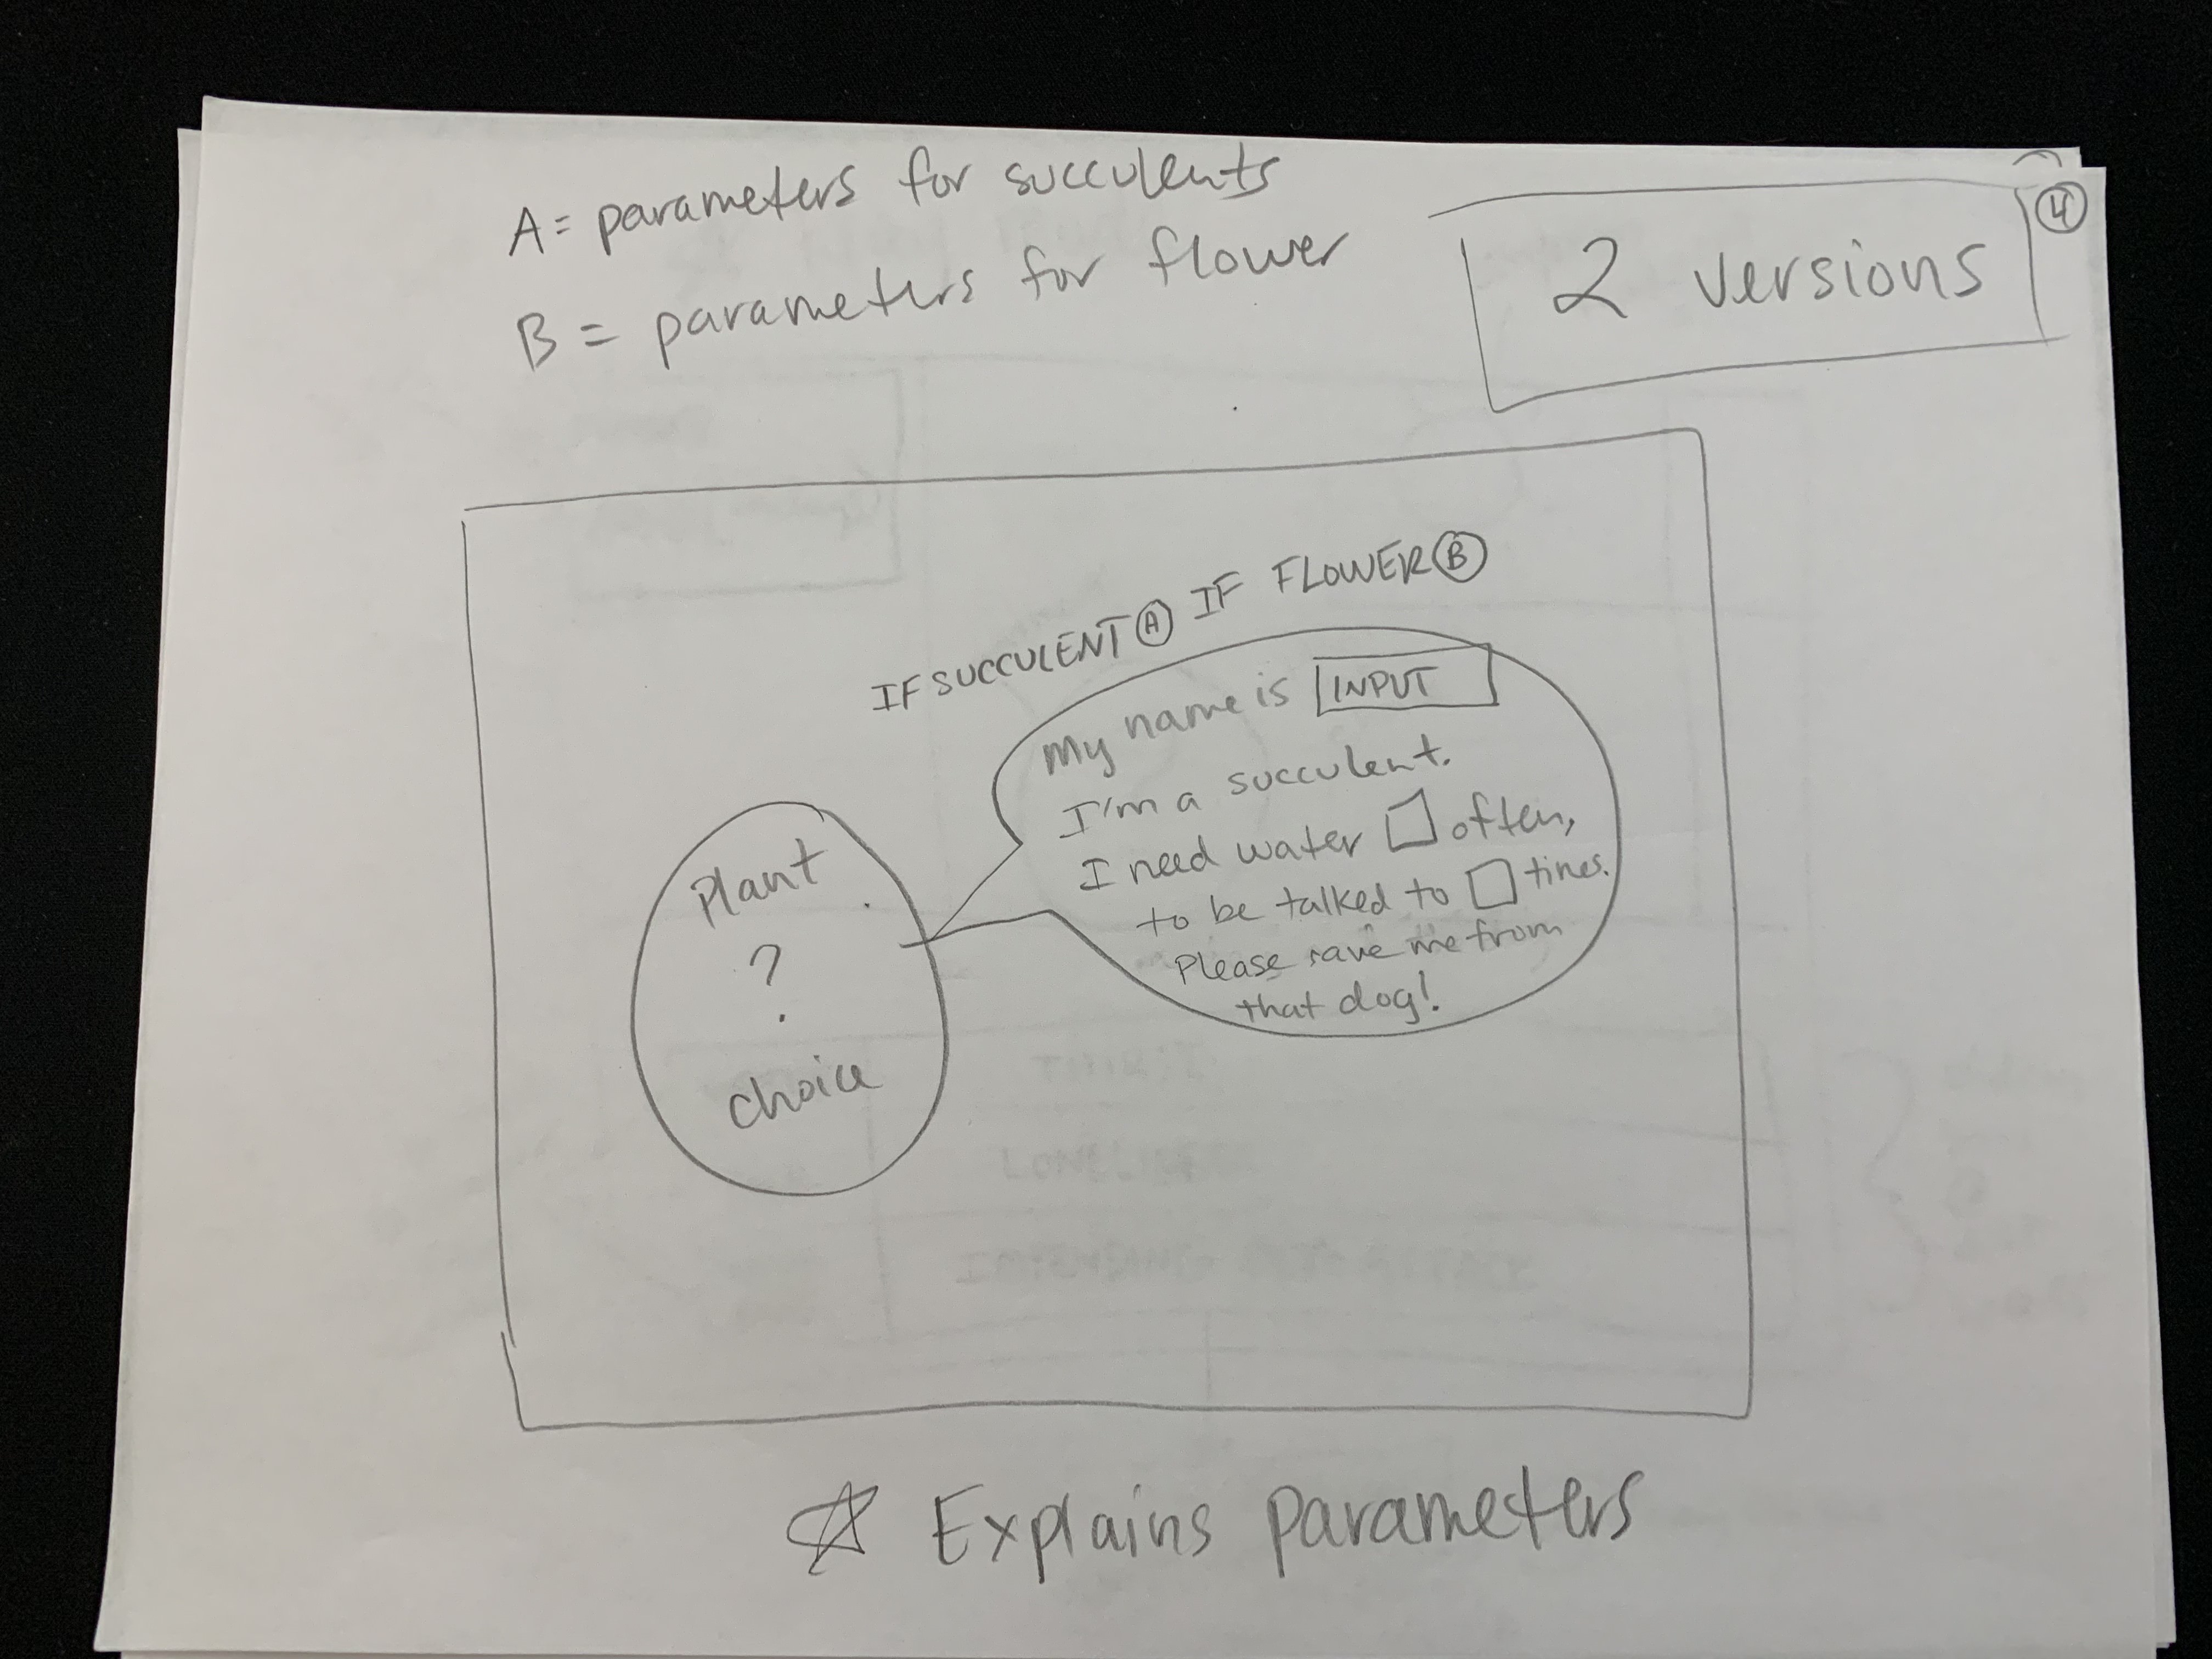 A = parameters for succulents
B = parameters for flower
2 versions
4
IF SUCCULENT A IF FLOWER B
My name is INPUT
I'm a succulent.
I need water often,
to be talked to times.
Please save me from
that dog!
Plant
?
choice
Explains parameters